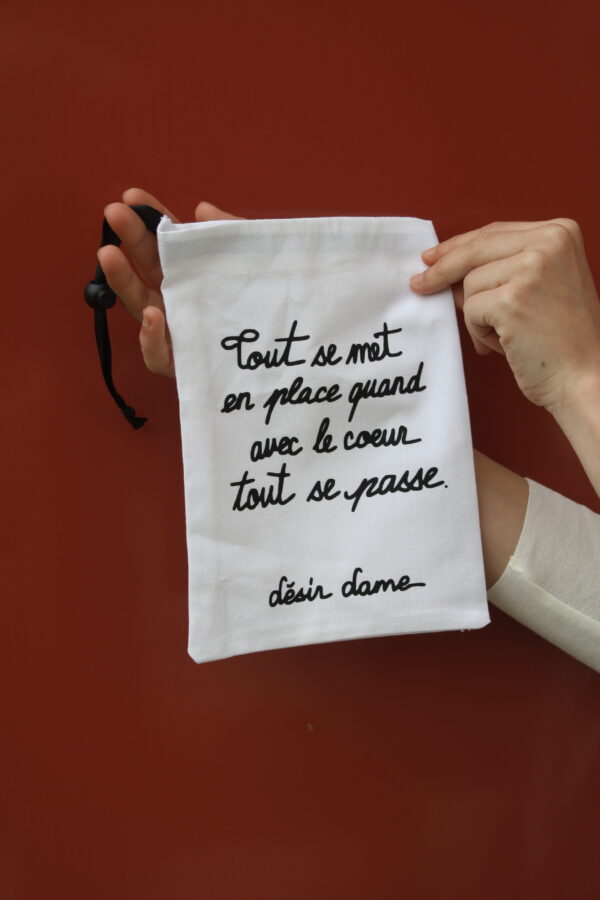 Tout se met
en place quand
avec le coeur
tout se passe.
désir dame